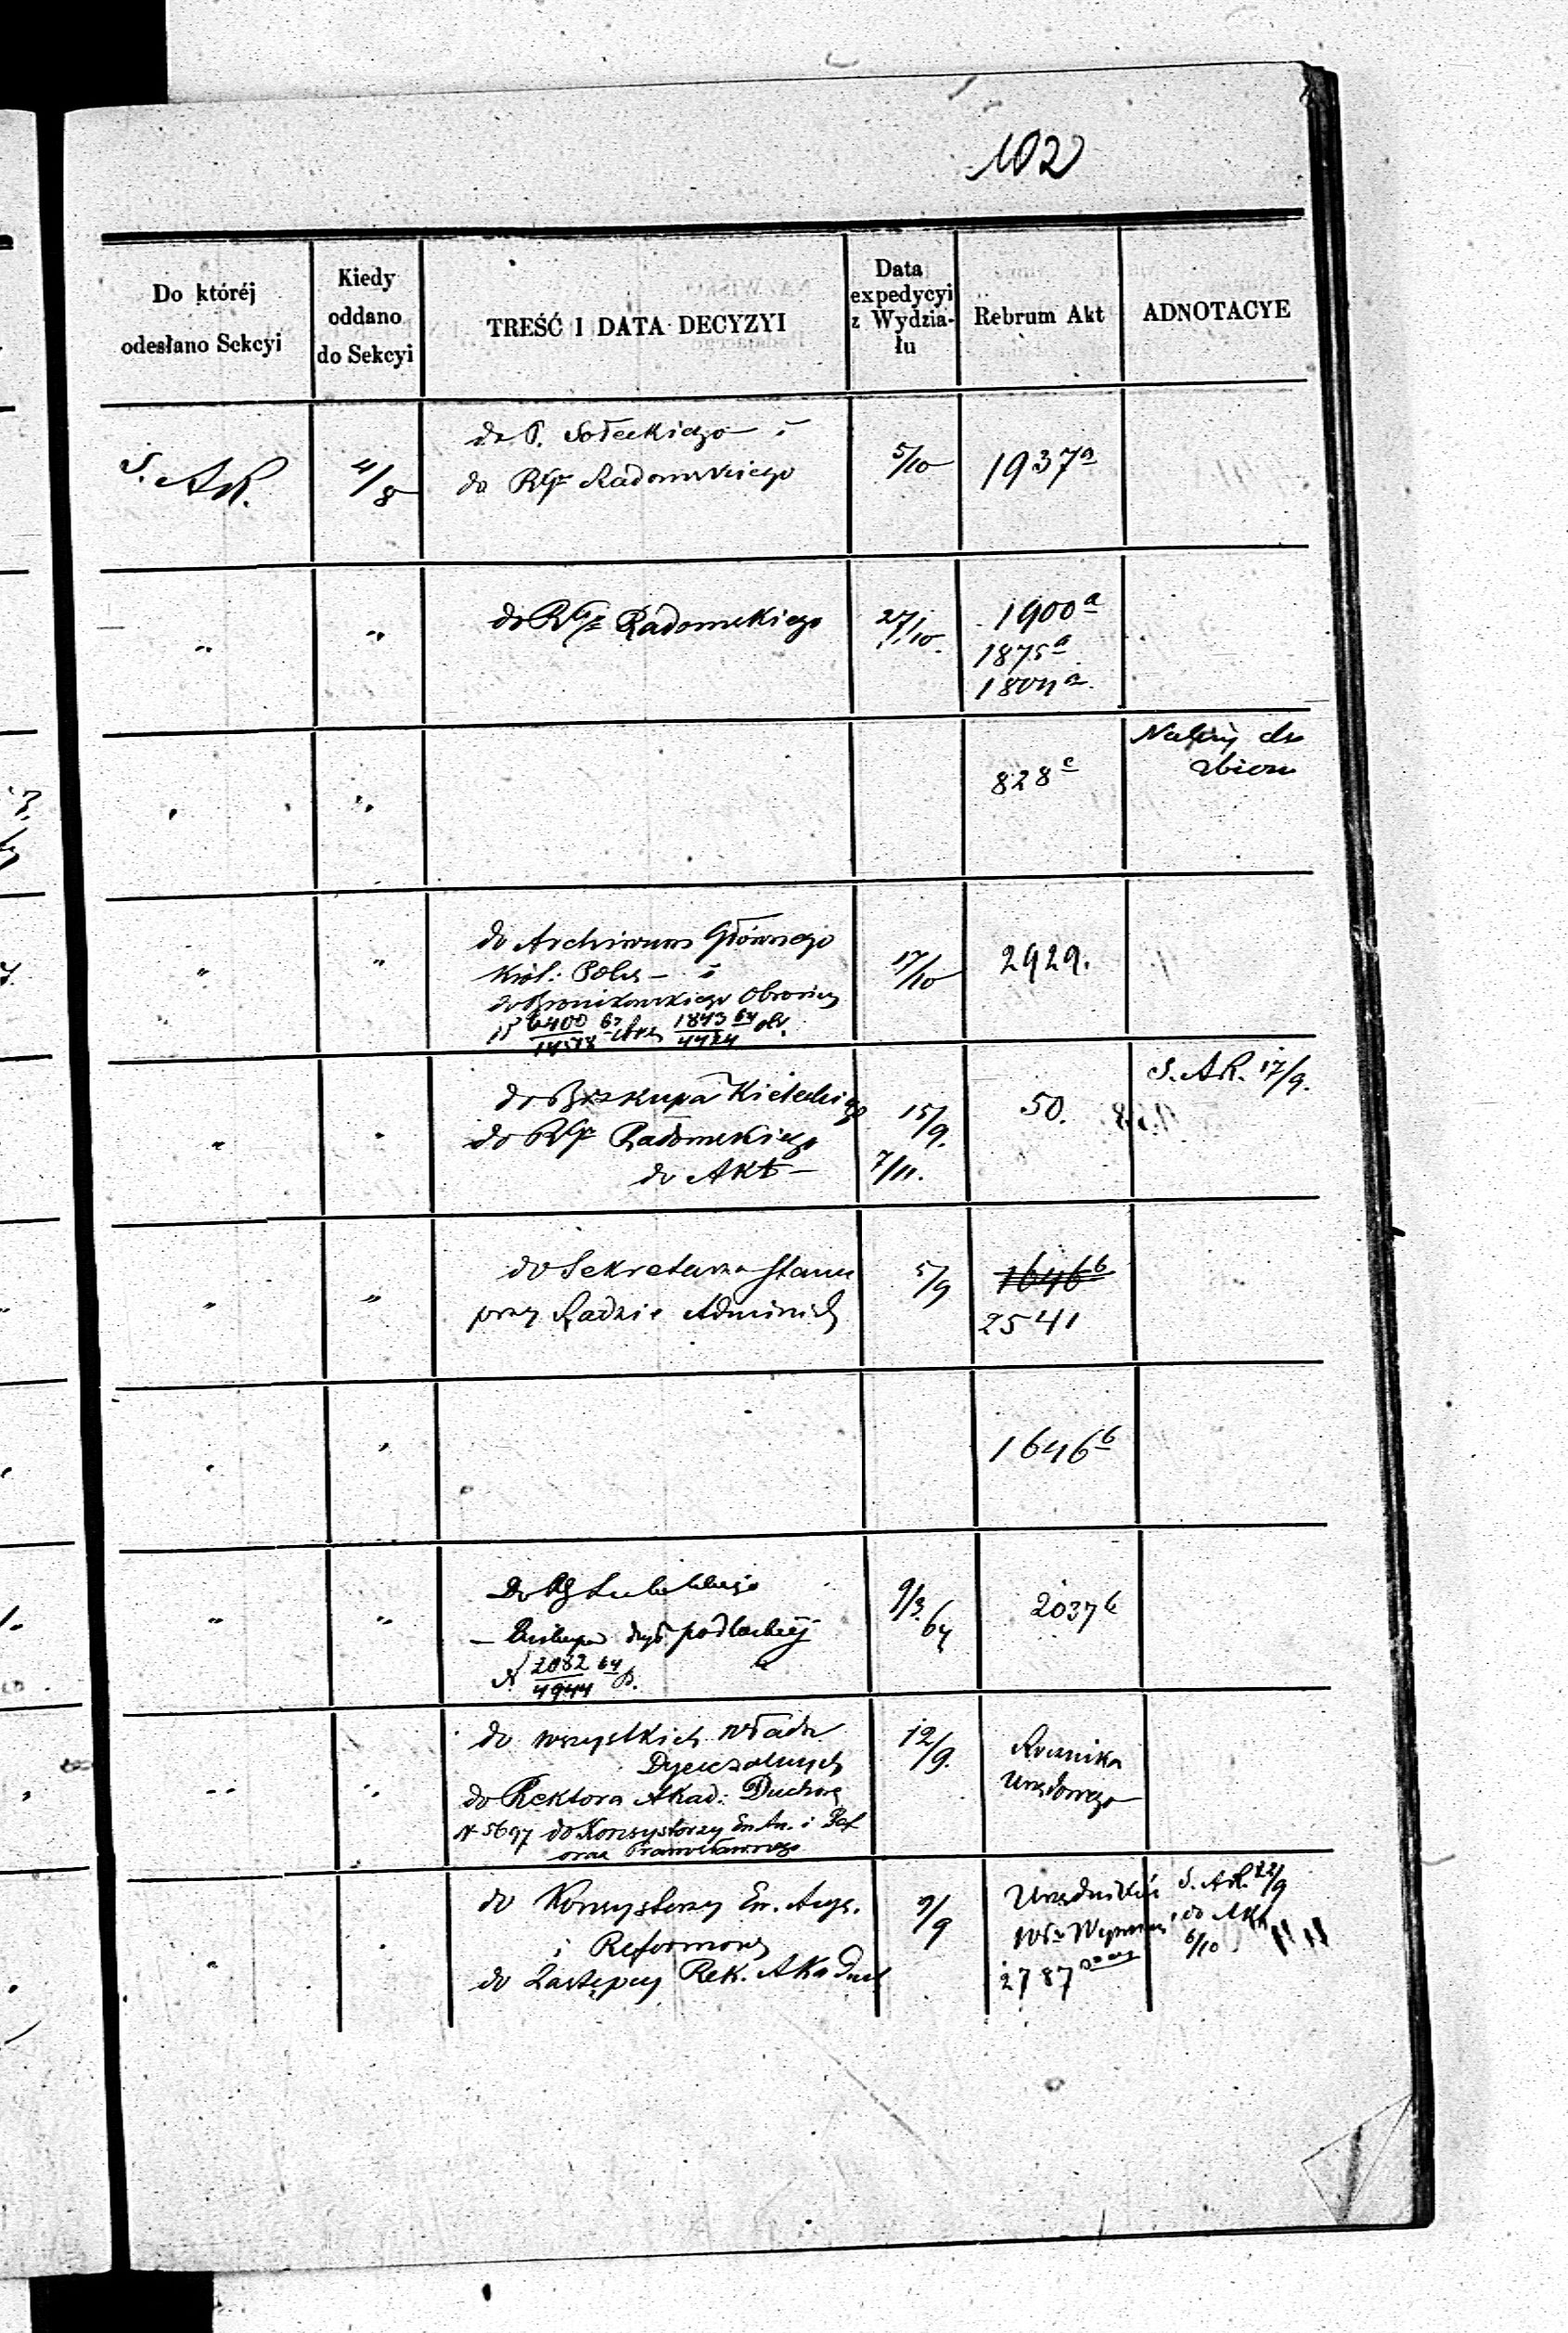 102
Do któréj
odesłano Sekcyi
Kiedy
oddano
do Sekcyi
TREŚĆ I DATA DECYZYI
Data
expedycyi
z Wydzia-
łu
Rebrum Akt
ADNOTACYE
S. AR.
4/8
do P. Sołeckiego i
do RGr Radomskiego
5/10
1937a
"
"
do RGr Radomskiego
27/10.
1900a
1875a
1804a.
"
"
828c
Należy do
zbioru
"
"
do Archiwum Głównego
Król: Pols – i
do Bronikowskiego Obrońcy
17/10
2929.
"
"
do Biskupa Kieleckiego
do RGr Radomskiego
do Akt –
15/9.
7/11.
50.
S. AR. 17/9.
"
"
do Sekretarza Stanu
przy Radzie Administ
5/9
1646b
2541
"
"
1646b
"
"
Do RG Lubelskiego
– Biskupa dyec podlaskiéj
N 2082 64
4944
9/3.
64
2037b
"
"
do wszystkich Władz
Dyecezalnych
do Rektora Akad: Duchow
N 5697 do Konsystorzy Ew An. i Ref
oraz Prawosławnego
12/9.
Rocznika
Urzędowego
"
"
do Konsystorzy Ew. Augs.
i Reformow
do Zastępcy Rek. Akad Duch
9/9
Urzędników
2787
S. AR. 22/9
do Akt
6/10